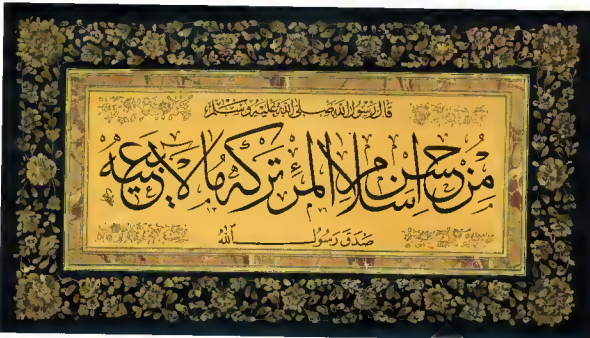 قال رسول الله صلى الله عليه وسلم
من حسن اسلام المرء تركه ما لا يعنيه
صدق رسول الله